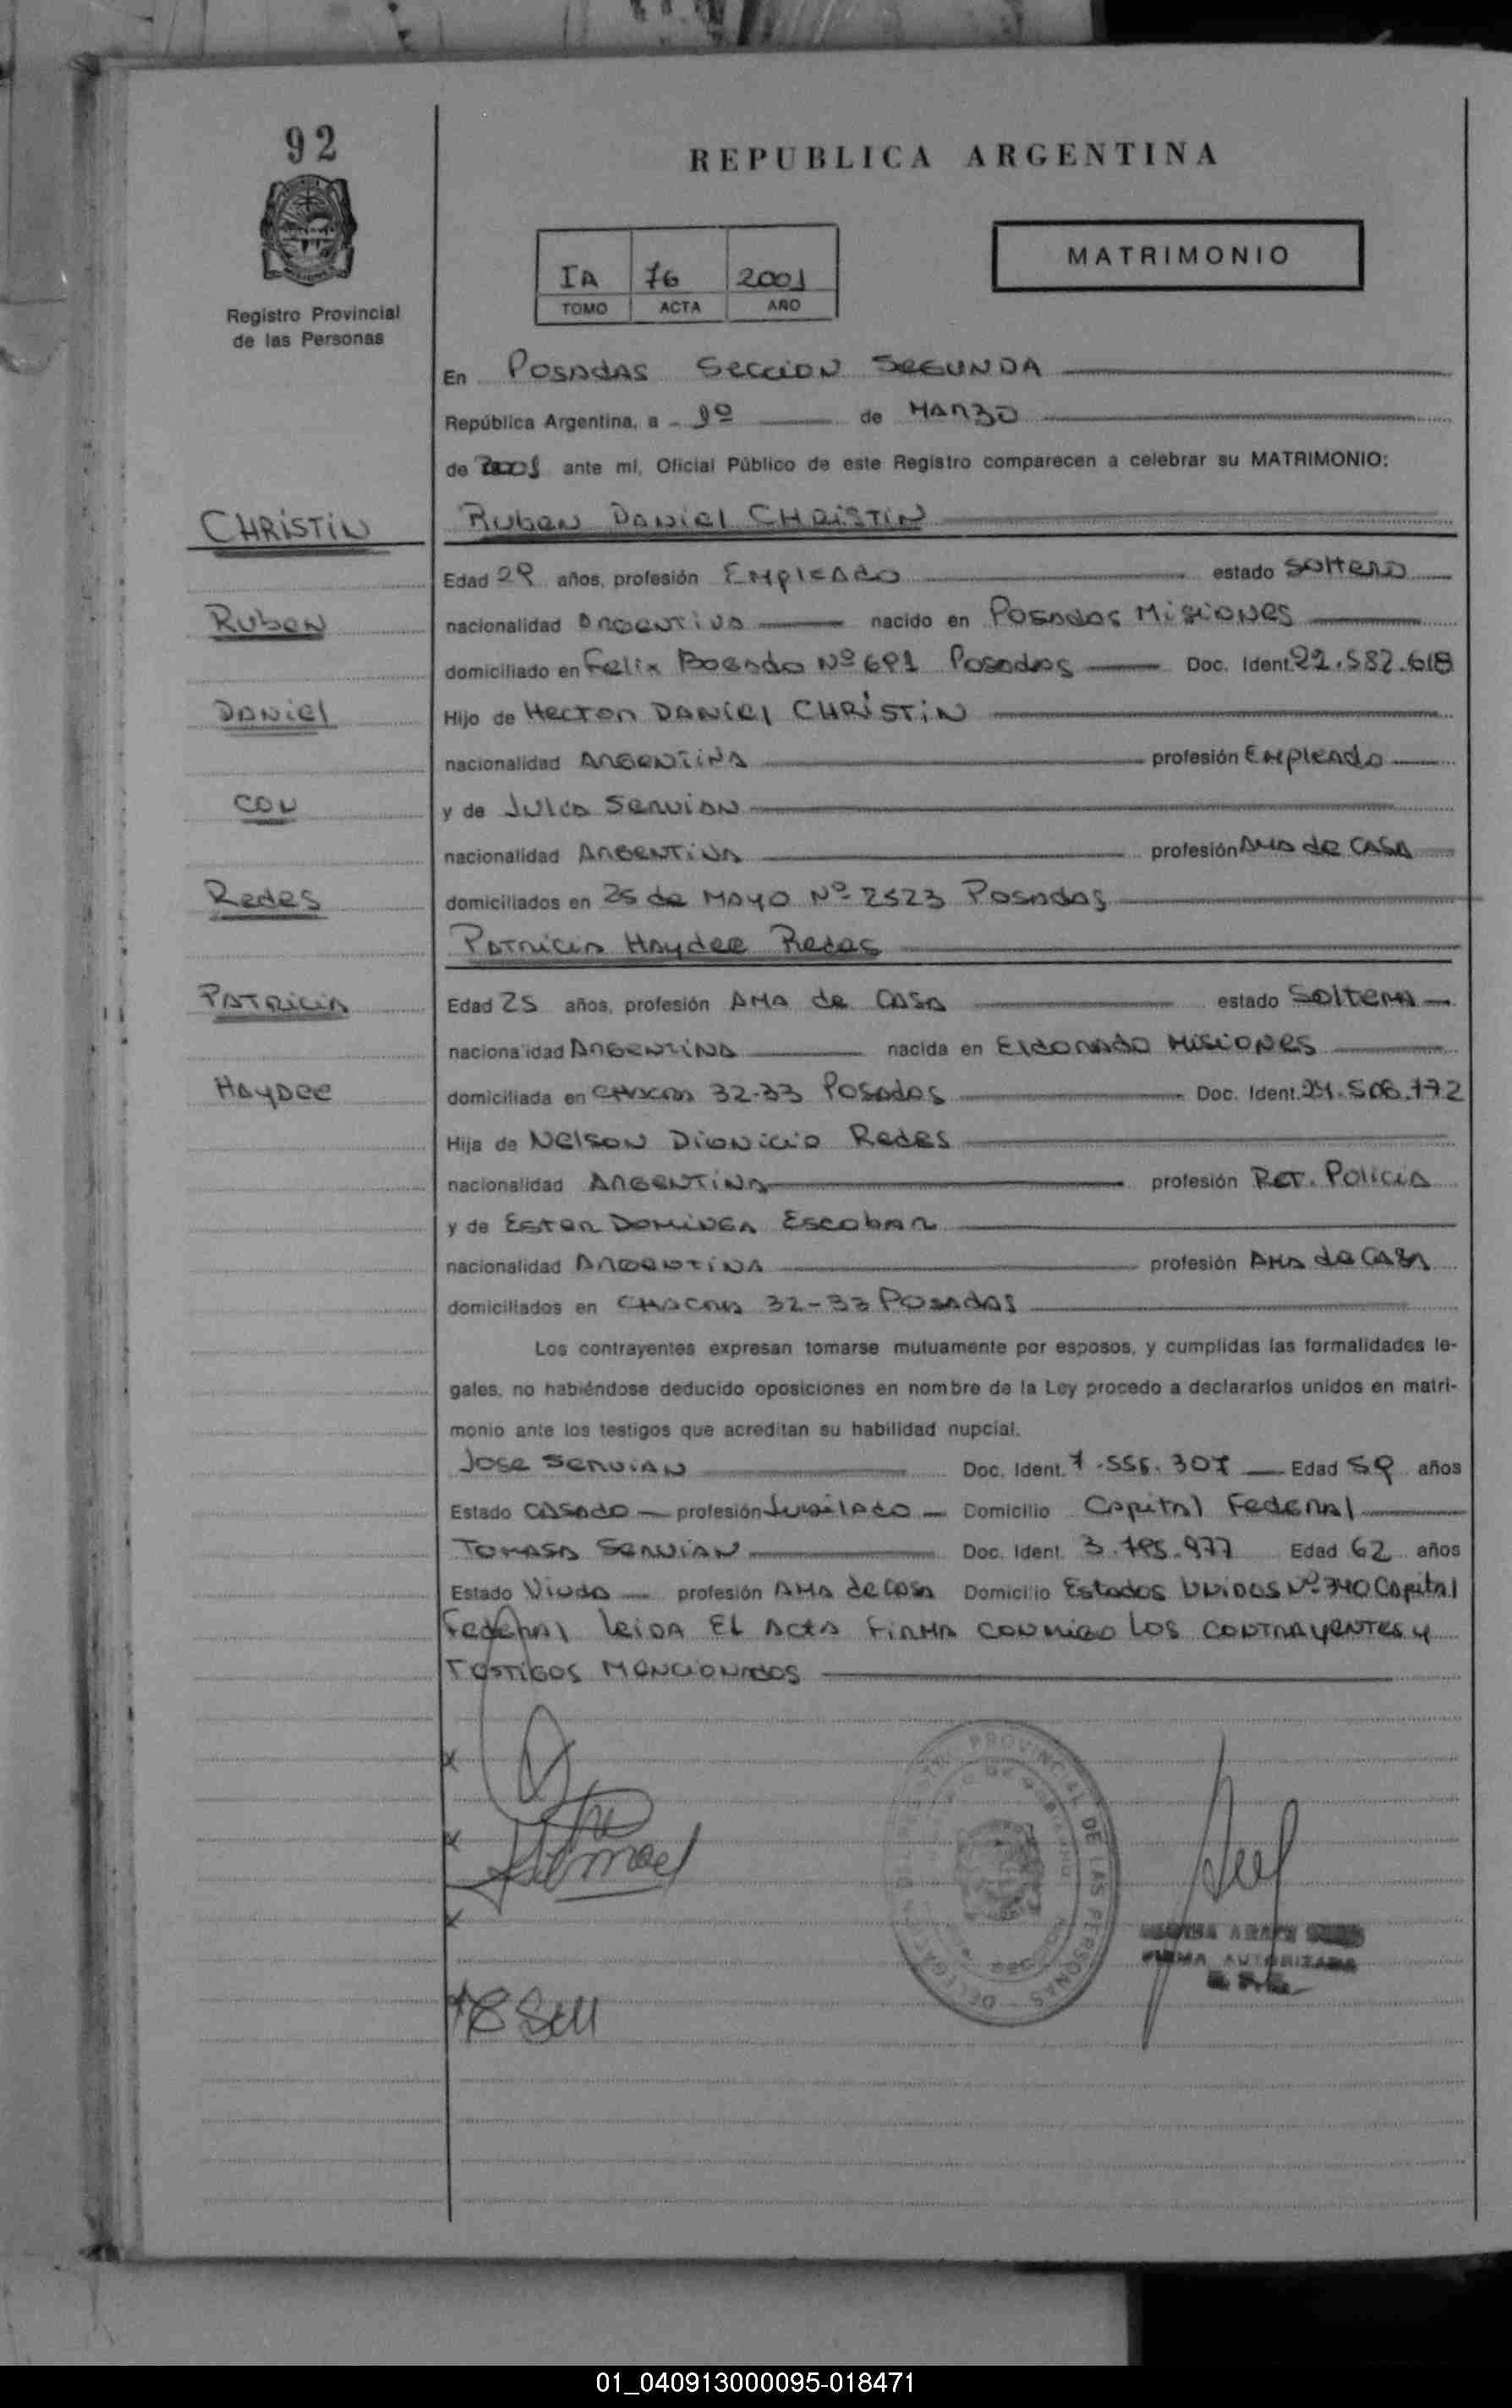 92
REPUBLICA ARGENTINA
MATRIMONIO
IA 76 2001
TOMO ACTA AÑO
Registro Provincial
de las Personas
En POSADAS SECCION SEGUNDA
República Argentina, a 1º de MARZO
de 2001 ante mí, Oficial Público de este Registro comparecen a celebrar su MATRIMONIO:
CHRISTIN
Ruben Daniel CHRISTIN
Edad 29 años, profesión Empleado estado soltero
Ruben
nacionalidad Argentina nacido en Posadas Misiones
domiciliado en Felix Bogado Nº 691 Posadas Doc. Ident. 22.582.618
Daniel
Hijo de Hector DANIEL CHRISTIN
nacionalidad ARGENTINA profesión Empleado
con
y de Julia Servian
nacionalidad ARGENTINA profesión Ama de CASA
Redes
domiciliados en 25 de MAYO Nº 2523 Posadas
Patricia Haydee Redes
Patricia
Edad 25 años, profesión AMA de CASA estado Soltera
nacionalidad ARGENTINA nacida en Eldorado Misiones
Haydee
domiciliada en CHACRA 32-33 Posadas Doc. Ident. 24.508.772
Hija de Nelson Dionicio Redes
nacionalidad ARGENTINA profesión Ret. Policia
y de Ester Dominga Escobar
nacionalidad ARGENTINA profesión AMA de CASA
domiciliados en CHACRA 32-33 Posadas
Los contrayentes expresan tomarse mutuamente por esposos, y cumplidas las formalidades le-
gales, no habiéndose deducido oposiciones en nombre de la Ley procedo a declararlos unidos en matri-
monio ante los testigos que acreditan su habilidad nupcial.
Jose Servian Doc. Ident. 7.556.307 Edad 59 años
Estado CASADO profesión Jubilado Domicilio Capital Federal
TOMASA SERVIAN Doc. Ident. 3.795.977 Edad 62 años
Estado Viuda profesión AMA de casa Domicilio Estados UNIDOS Nº 740 Capital
Federal leida El Acta firma conmigo los contrayentes y
Testigos mencionados
PROVINCIAL DE LAS PERSONAS
FIRMA AUTORIZADA
01_040913000095-018471